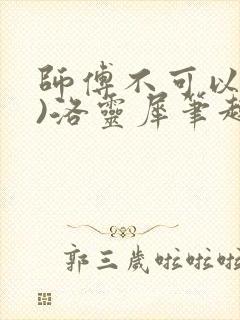 師傅不可以
)洛靈犀筆趣
郭三歲啦啦啦